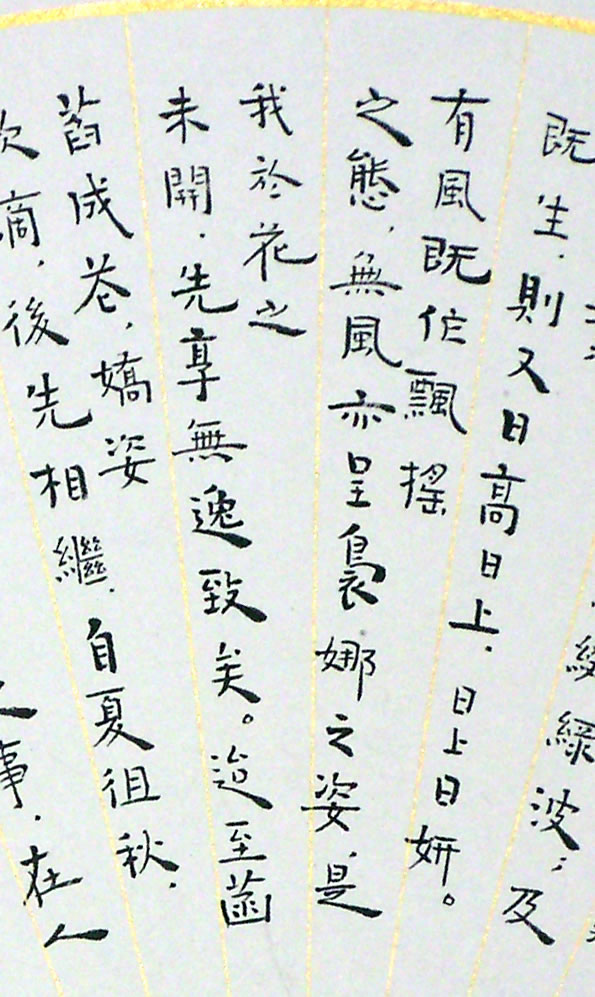 綴綠波；及
既生，則又日高日上，日上日妍。
有風既作飄搖
之態，無風亦呈裊娜之姿，是
我於花之
未開，先享無逸致矣。迨至菡
萏成花，嬌姿
欲滴，後先相繼，自夏徂秋，
之事，在人